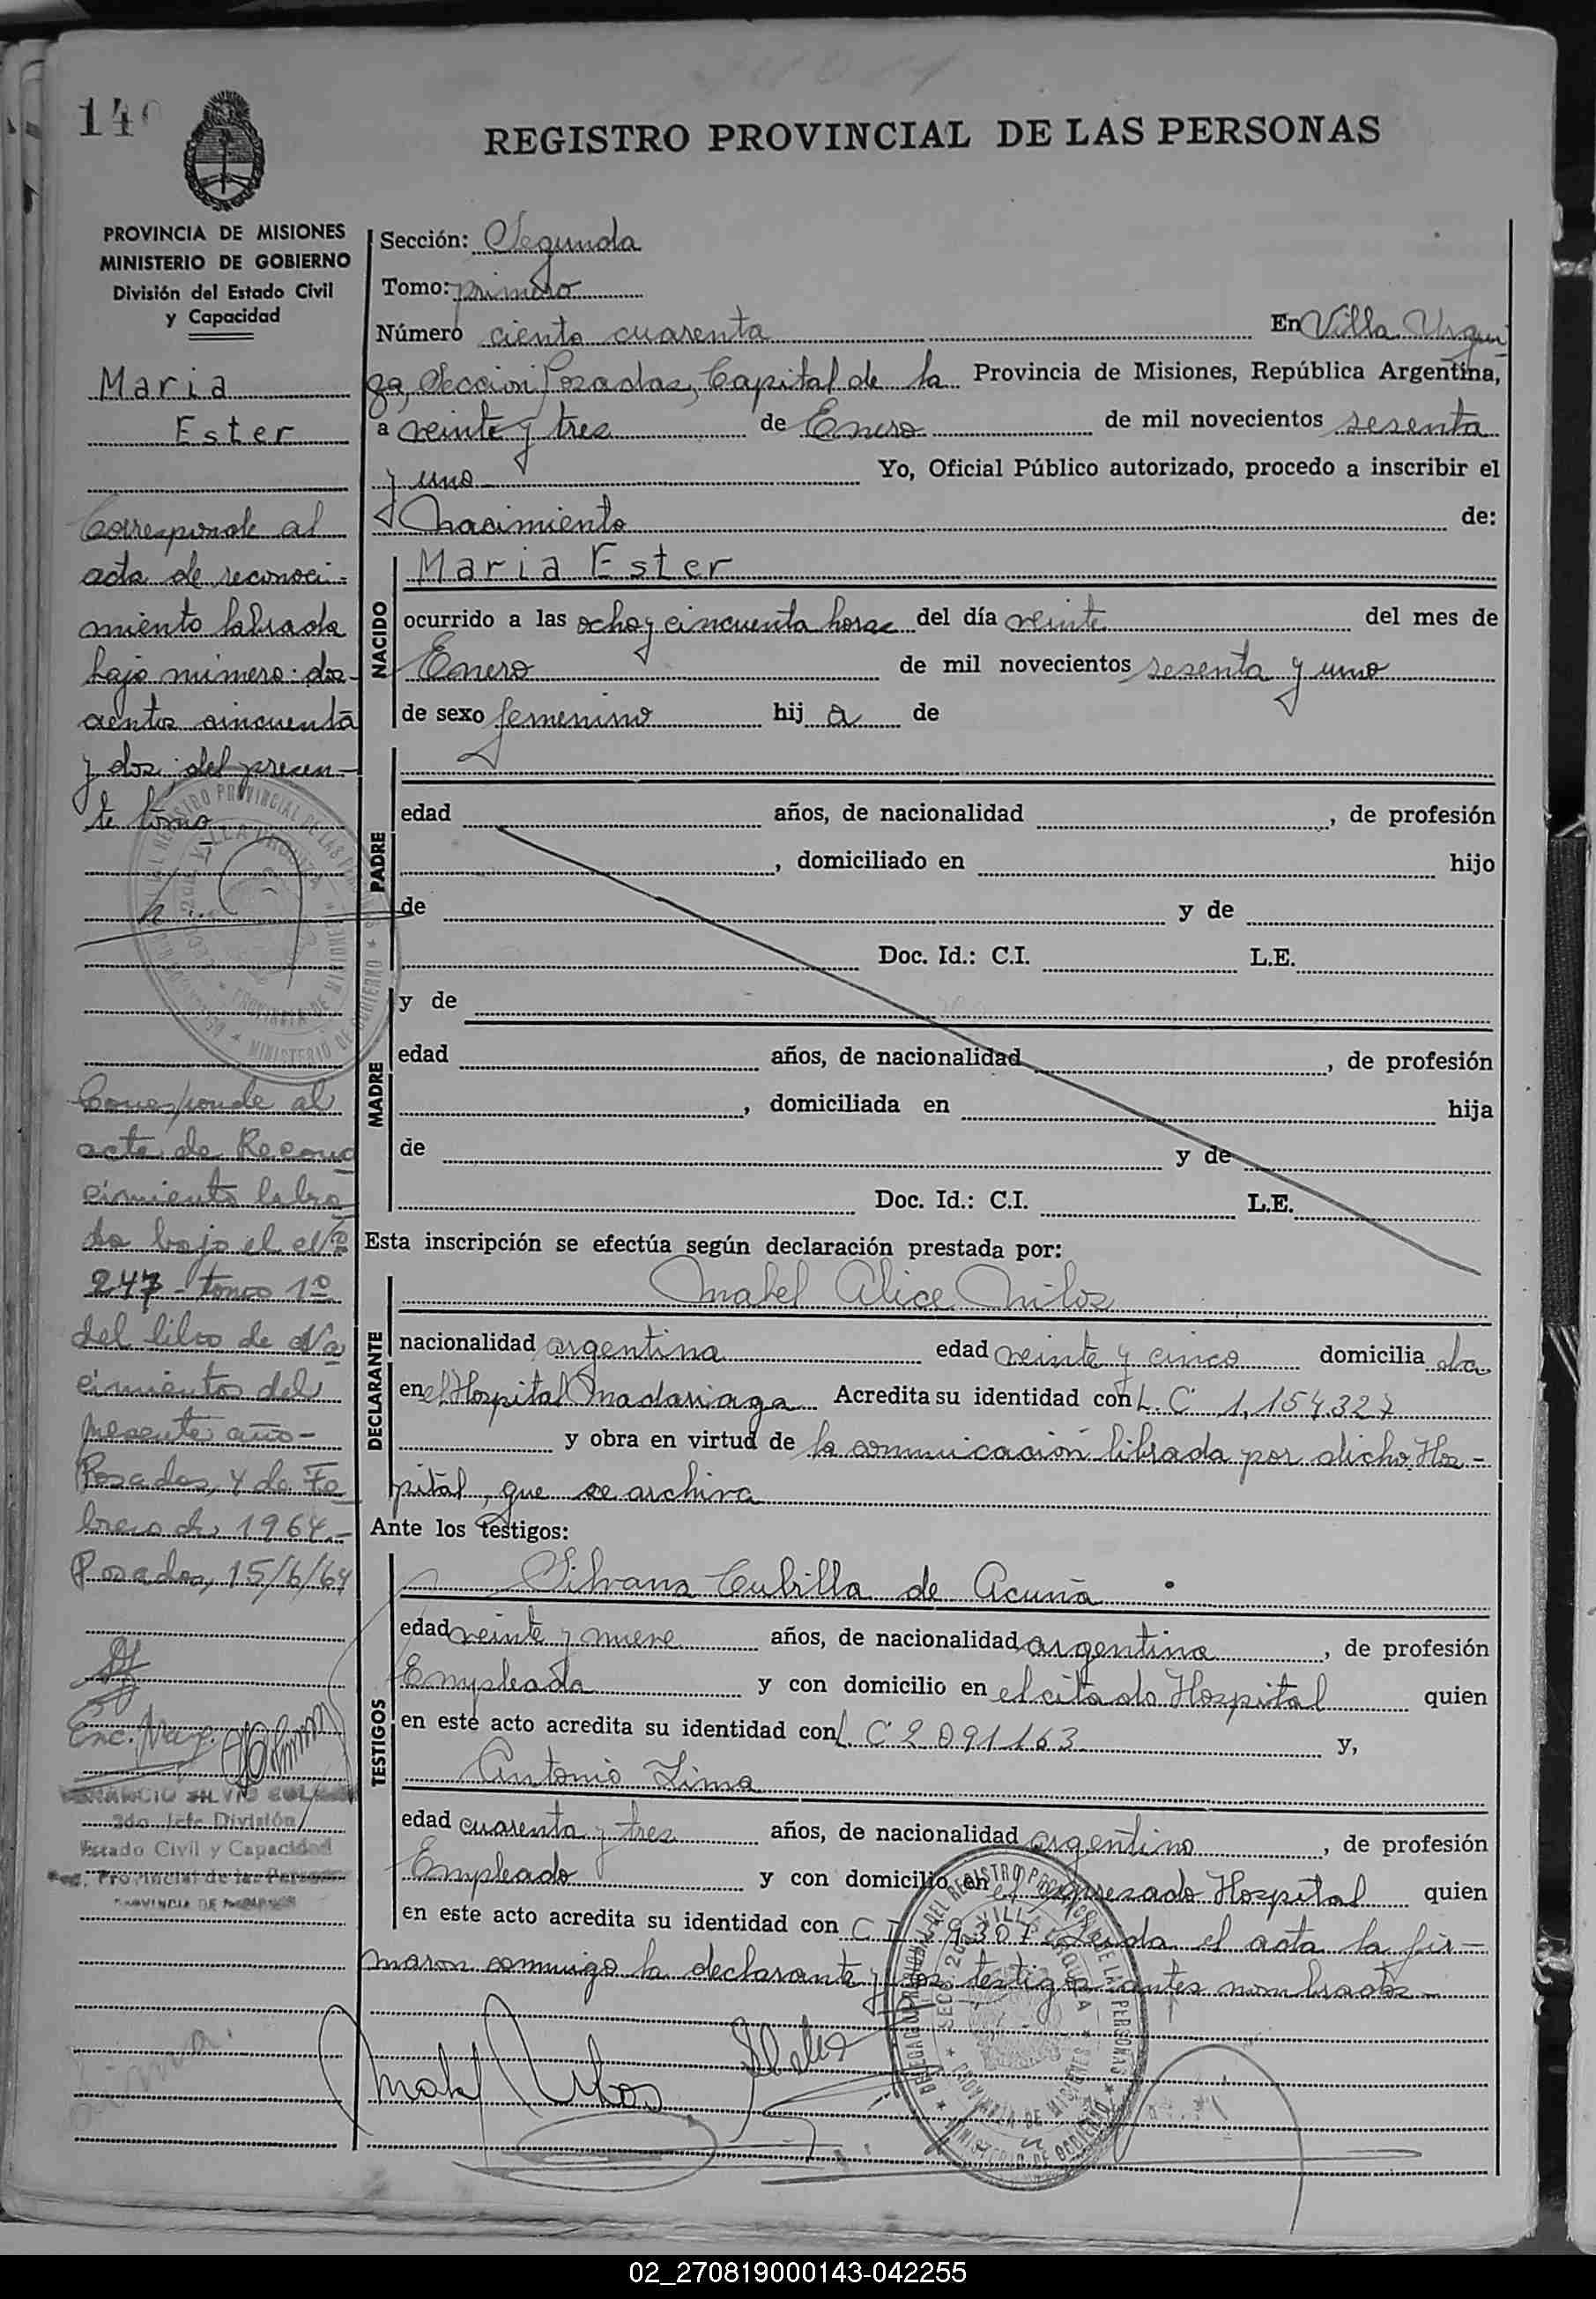 140
REGISTRO PROVINCIAL DE LAS PERSONAS
PROVINCIA DE MISIONES
MINISTERIO DE GOBIERNO
División del Estado Civil
y Capacidad
Maria
Ester
Corresponde al
acta de reconoci-
miento labrada
bajo número: dos-
cientos cincuenta
y dos del presen-
te tomo
Corresponde al
acta de Recono
cimiento labra
da bajo el Nº
247 - tomo 1º
del libro de Na
cimientos del
presente año -
Posadas, 4 de Fe
brero de 1964.-
Posadas, 15/6/64
2do. Jefe División
Estado Civil y Capacidad
Reg. Provincial de las Personas
PROVINCIA DE MISIONES
Sección: Segunda
Tomo: primero
Número ciento cuarenta En Villa Urqui
za, Seccion Posadas, Capital de la Provincia de Misiones, República Argentina,
a veinte y tres de Enero de mil novecientos sesenta
y uno Yo, Oficial Público autorizado, procedo a inscribir el
Nacimiento de:
NACIDO
Maria Ester
ocurrido a las ocho y cincuenta horas del día veinte del mes de
Enero de mil novecientos sesenta y uno
de sexo femenino hij a de
PADRE
edad años, de nacionalidad , de profesión
, domiciliado en hijo
de y de
Doc. Id.: C.I. L.E.
MADRE
y de
edad años, de nacionalidad , de profesión
, domiciliada en hija
de y de
Doc. Id.: C.I. L.E.
Esta inscripción se efectúa según declaración prestada por:
DECLARANTE
Mabel Alice Nilos
nacionalidad argentina edad veinte y cinco domicilia da
en el Hospital Madariaga Acredita su identidad con L. C 1,154.327
y obra en virtud de la comunicación librada por dicho Hos-
pital, que se archiva
Ante los testigos:
TESTIGOS
Silvana Cubilla de Acuña
edad veinte y nueve años, de nacionalidad argentina , de profesión
Empleada y con domicilio en el citado Hospital quien
en este acto acredita su identidad con L. C 2.091.163 y,
Antonio Lima
edad cuarenta y tres años, de nacionalidad argentino , de profesión
Empleado y con domicilio en el expresado Hospital quien
en este acto acredita su identidad con C I Leida el acta la fir-
maron conmigo la declarante y los testigos antes nombrados -
02_270819000143-042255